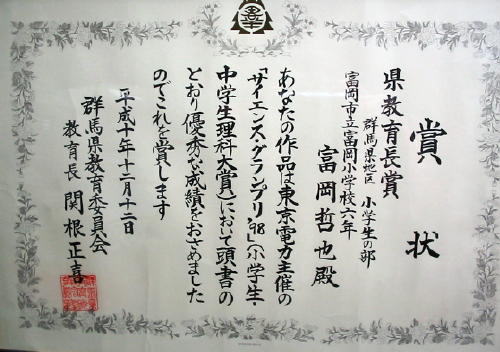 賞状
県教育長賞
群馬県地区 小学生の部
富岡市立富岡小学校六年
富岡哲也殿
あなたの作品は東京電力主催の
「サイエンス・グランプリ'98」(小学生・
中学生理科大賞)において頭書の
とおり優秀な成績をおさめました
のでこれを賞します
平成十年十二月十二日
群馬県教育委員会
教育長 関根正喜